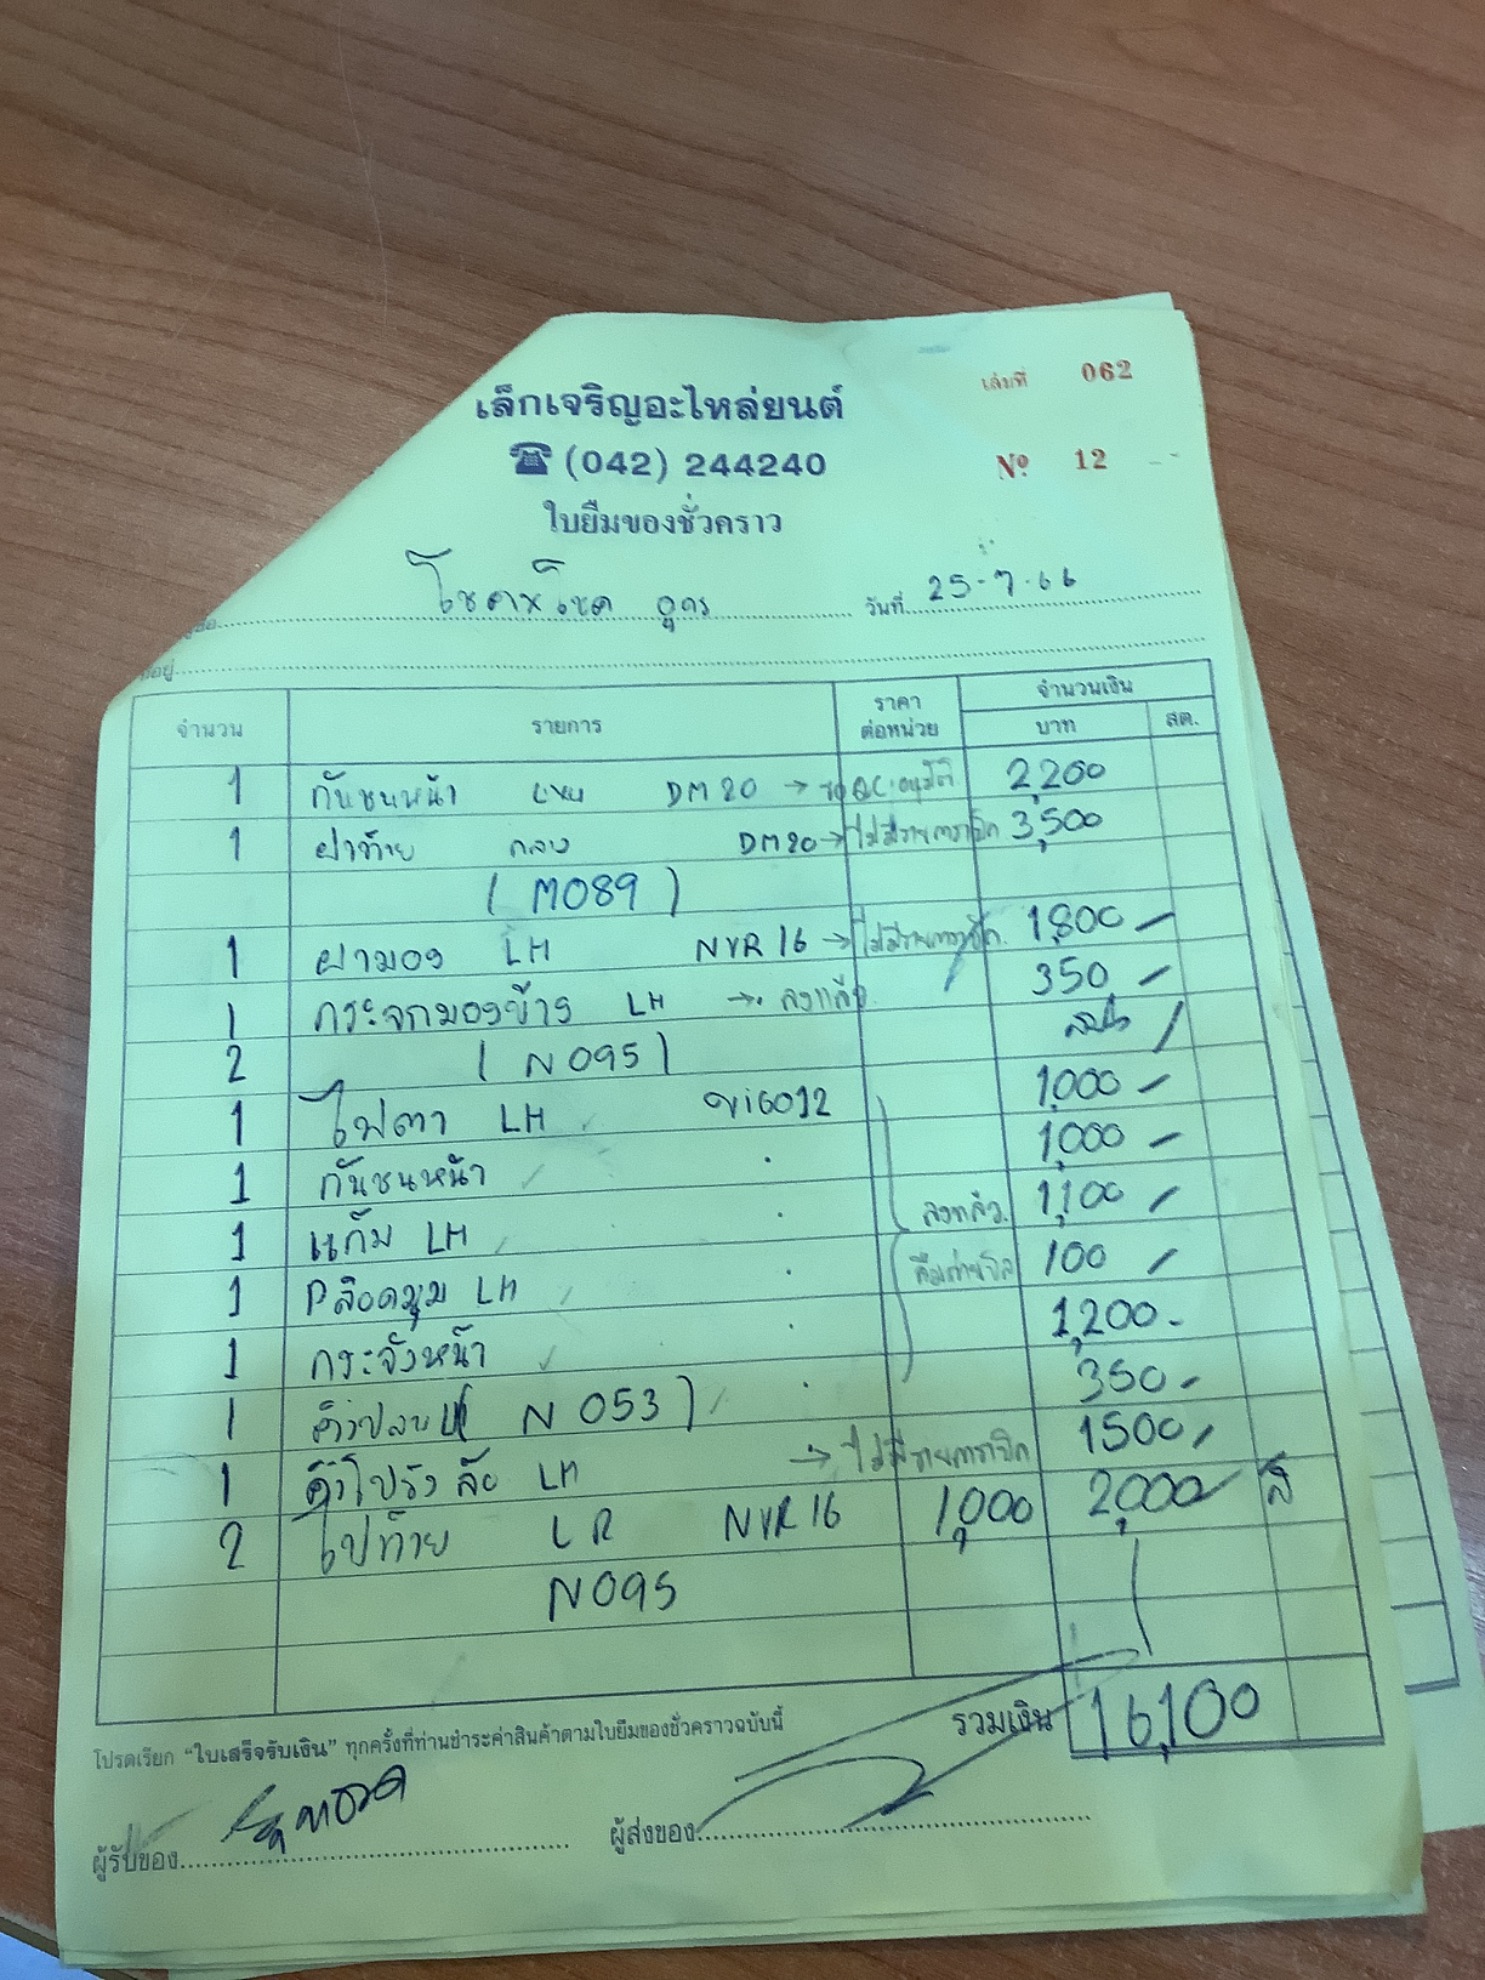 เล่มที่ 062
เล็กเจริญอะไหล่ยนต์
☎ (042) 244240
Nº 12
ใบยืมของชั่วคราว
โชคทวีโชค อุดร วันที่ 25-7-66
ที่อยู่
จำนวน รายการ ราคาต่อหน่วย จำนวนเงิน
บาท สต.
1 กันชนหน้า แหนบ DM20 → รอ QC อนุมัติ 2,200
1 ฝาท้าย กลาง DM20 → ไม่มีรายการเบิก 3,500
( M089 )
1 ฝามอง LH NVR16 → ไม่มีรายการเบิก. 1,800 -
1 กระจกมองข้าง LH → ลงแล้ว 350 -
2 ( N095 )
1 ไฟตา LH Vigo12 1,000 -
1 กันชนหน้า 1,000 -
1 แก้ม LH ลงแล้ว. 1,100 -
1 Pลือคมุม LH 100 -
1 กระจังหน้า 1,200 -
1 ( N053 ) 350 -
1 คิ้วโป่งล้อ LH → ไม่มีรายการเบิก 1500 -
2 ไฟท้าย L R NVR16 1,000 2,000
N095
รวมเงิน 16,100
โปรดเรียก “ใบเสร็จรับเงิน” ทุกครั้งที่ท่านชำระค่าสินค้าตามใบยืมของชั่วคราวฉบับนี้
ผู้รับของ ผู้ส่งของ